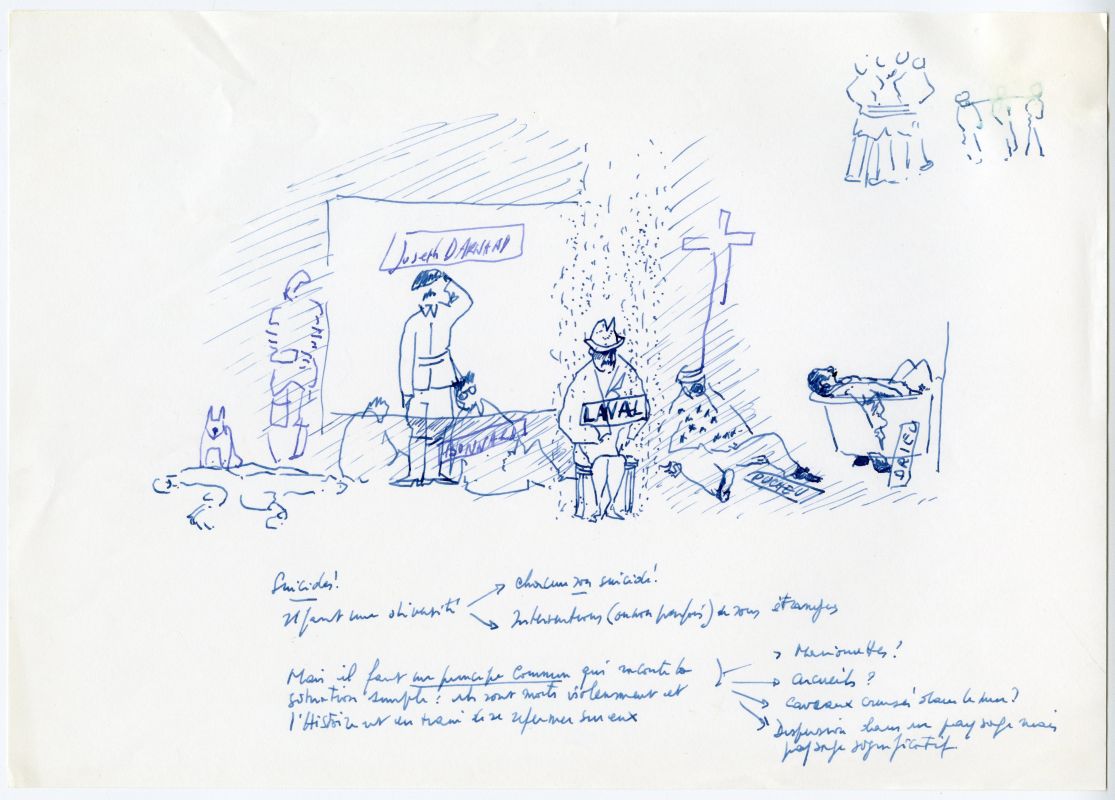 Joseph DARNAND
LAVAL
PUCHEU
DRIEU
Suicides!
Il faut une diversité
chacun son suicide!
Interventions (ou non parfois) de sons étranges
Mais il faut un principe commun qui raconte la
situation simple : ils sont morts violemment et
l'Histoire est en train de se refermer sur eux
Marionnettes?
cercueils?
caveaux creusés dans le mur?
Dispersion dans un paysage mais
paysage significatif